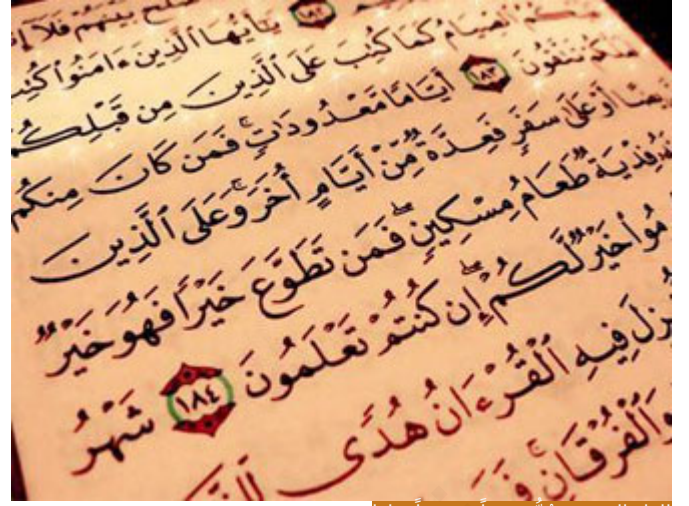 بَيْنَهُمْ فَلَآ إِ
١٨٢ يَٰٓأَيُّهَا ٱلَّذِينَ ءَامَنُوا۟ كُتِبَ
ٱلصِّيَامُ كَمَا كُتِبَ عَلَى ٱلَّذِينَ مِن قَبْلِكُمْ
تَتَّقُونَ ١٨٣ أَيَّامًا مَّعْدُودَٰتٍ ۚ فَمَن كَانَ مِنكُم
أَوْ عَلَىٰ سَفَرٍ فَعِدَّةٌ مِّنْ أَيَّامٍ أُخَرَ ۚ وَعَلَى ٱلَّذِينَ
فِدْيَةٌ طَعَامُ مِسْكِينٍ ۖ فَمَن تَطَوَّعَ خَيْرًا فَهُوَ خَيْرٌ
مُوا۟ خَيْرٌ لَّكُمْ ۖ إِن كُنتُمْ تَعْلَمُونَ ١٨٤ شَهْرُ
نزِلَ فِيهِ ٱلْقُرْءَانُ هُدًى
وَٱلْفُرْقَانِ ۚ فَمَن